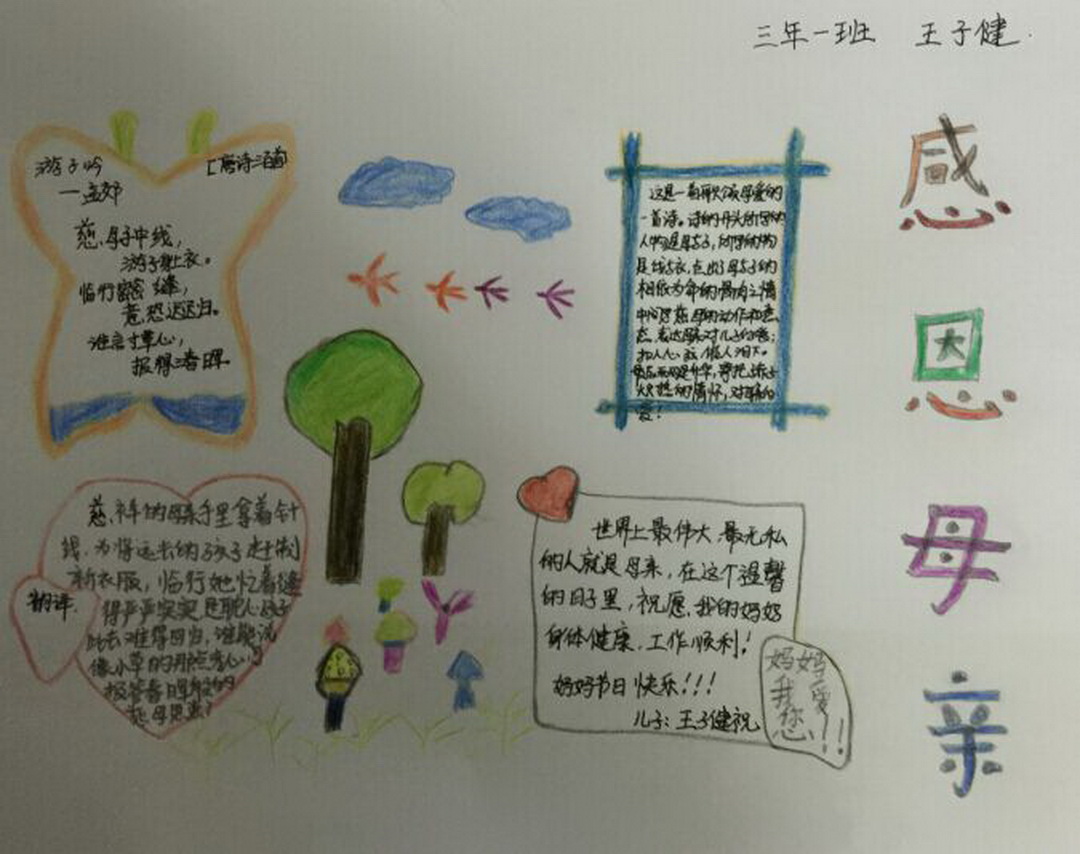 三年一班 王子健
感
恩
母
亲
游子吟
[唐诗]
—孟郊
慈母手中线,
游子身上衣。
临行密密缝,
意恐迟迟归。
谁言寸草心,
报得春晖
这是一首歌颂母爱的
一首诗。诗的开头所写的
人物是母子,所写的物
是线与衣,点出了母子的
相依为命的骨肉之情
中间写慈母的动作和意
态,表达母亲对儿子的爱;
扣人心弦,催人泪下。
慈祥的母亲手里拿着针
线,为将远出的孩子赶制
新衣服,临行她忙着缝
得严严实实是耽心孩子
此去难得回归,谁能说
像小草的那点孝心,可
报答春晖般的
慈母恩惠?
翻译:
世界上最伟大、最无私
的人就是母亲,在这个温馨
的日子里,祝愿,我的妈妈
身体健康,工作顺利!
妈妈节日快乐!!!
儿子:王子健祝
妈妈
我爱
您!!!